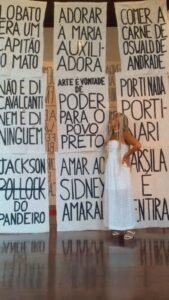 LOBATO
ERA UM
CAPITÃO
DO MATO
ADORAR
A MARIA
AUXILI-
ADORA
COMER A
CARNE DE
OSWALD DE
ANDRADE
NÃO É DI
CAVALCANTI
NEM É DI
NINGUEM
ARTE É VONTADE
DE
PODER
PARA O
POVO
PRETO
PORTINADA
PORTI-
ARI
JACKSON
POLLOCK
DO
PANDEIRO
AMAR AO
SIDNEY
AMARAL
ARSILA
É
ENTIRA